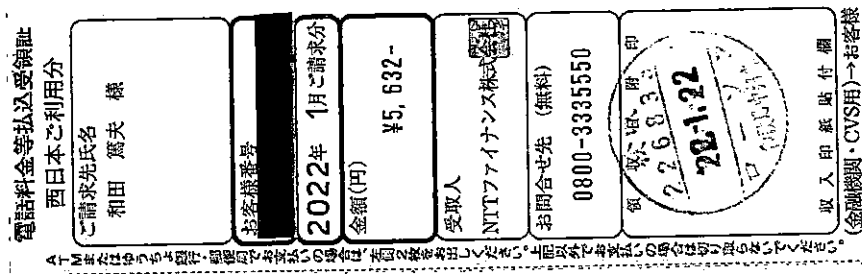 電話料金等払込受領証
西日本ご利用分
ご請求先氏名
和田 篤夫 様
お客様番号
2022年 1月ご請求分
金額(円)
¥5,632-
受取人
NTTファイナンス株式会社
お問合せ先 (無料)
0800-3335550
領収日附印
22683
22.1.22
ローソン
収入印紙貼付欄
(金融機関・CVS用)→お客様
ATMまたはゆうちょ銀行・郵便局でお支払いの場合は、左図2枚をお出しください。上記以外でお支払いの場合は切り取らないでください。